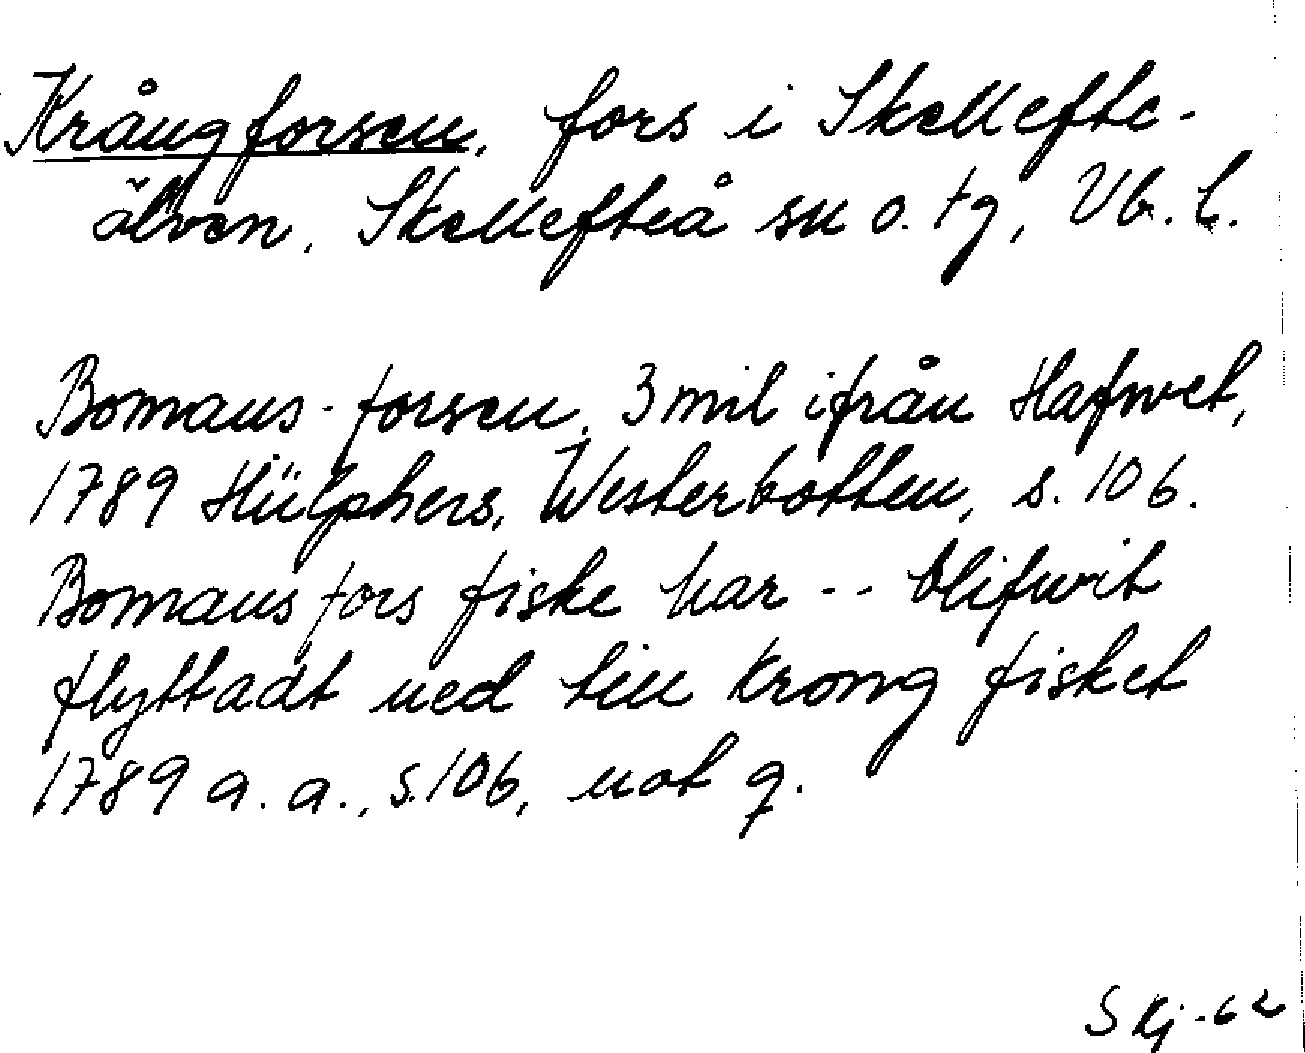 Krångforsen, fors i Skellefte-
älven, Skellefteå sn o. tg, Vb. l.
Bomans-forsen, 3 mil ifrån Hafwet,
1789 Hülphers, Westerbotten, s. 106.
Bomans fors fiske har -- blifwit
flyttadt ned till Krong fisket
1789 a. a., s. 106, not q.
SKj-62